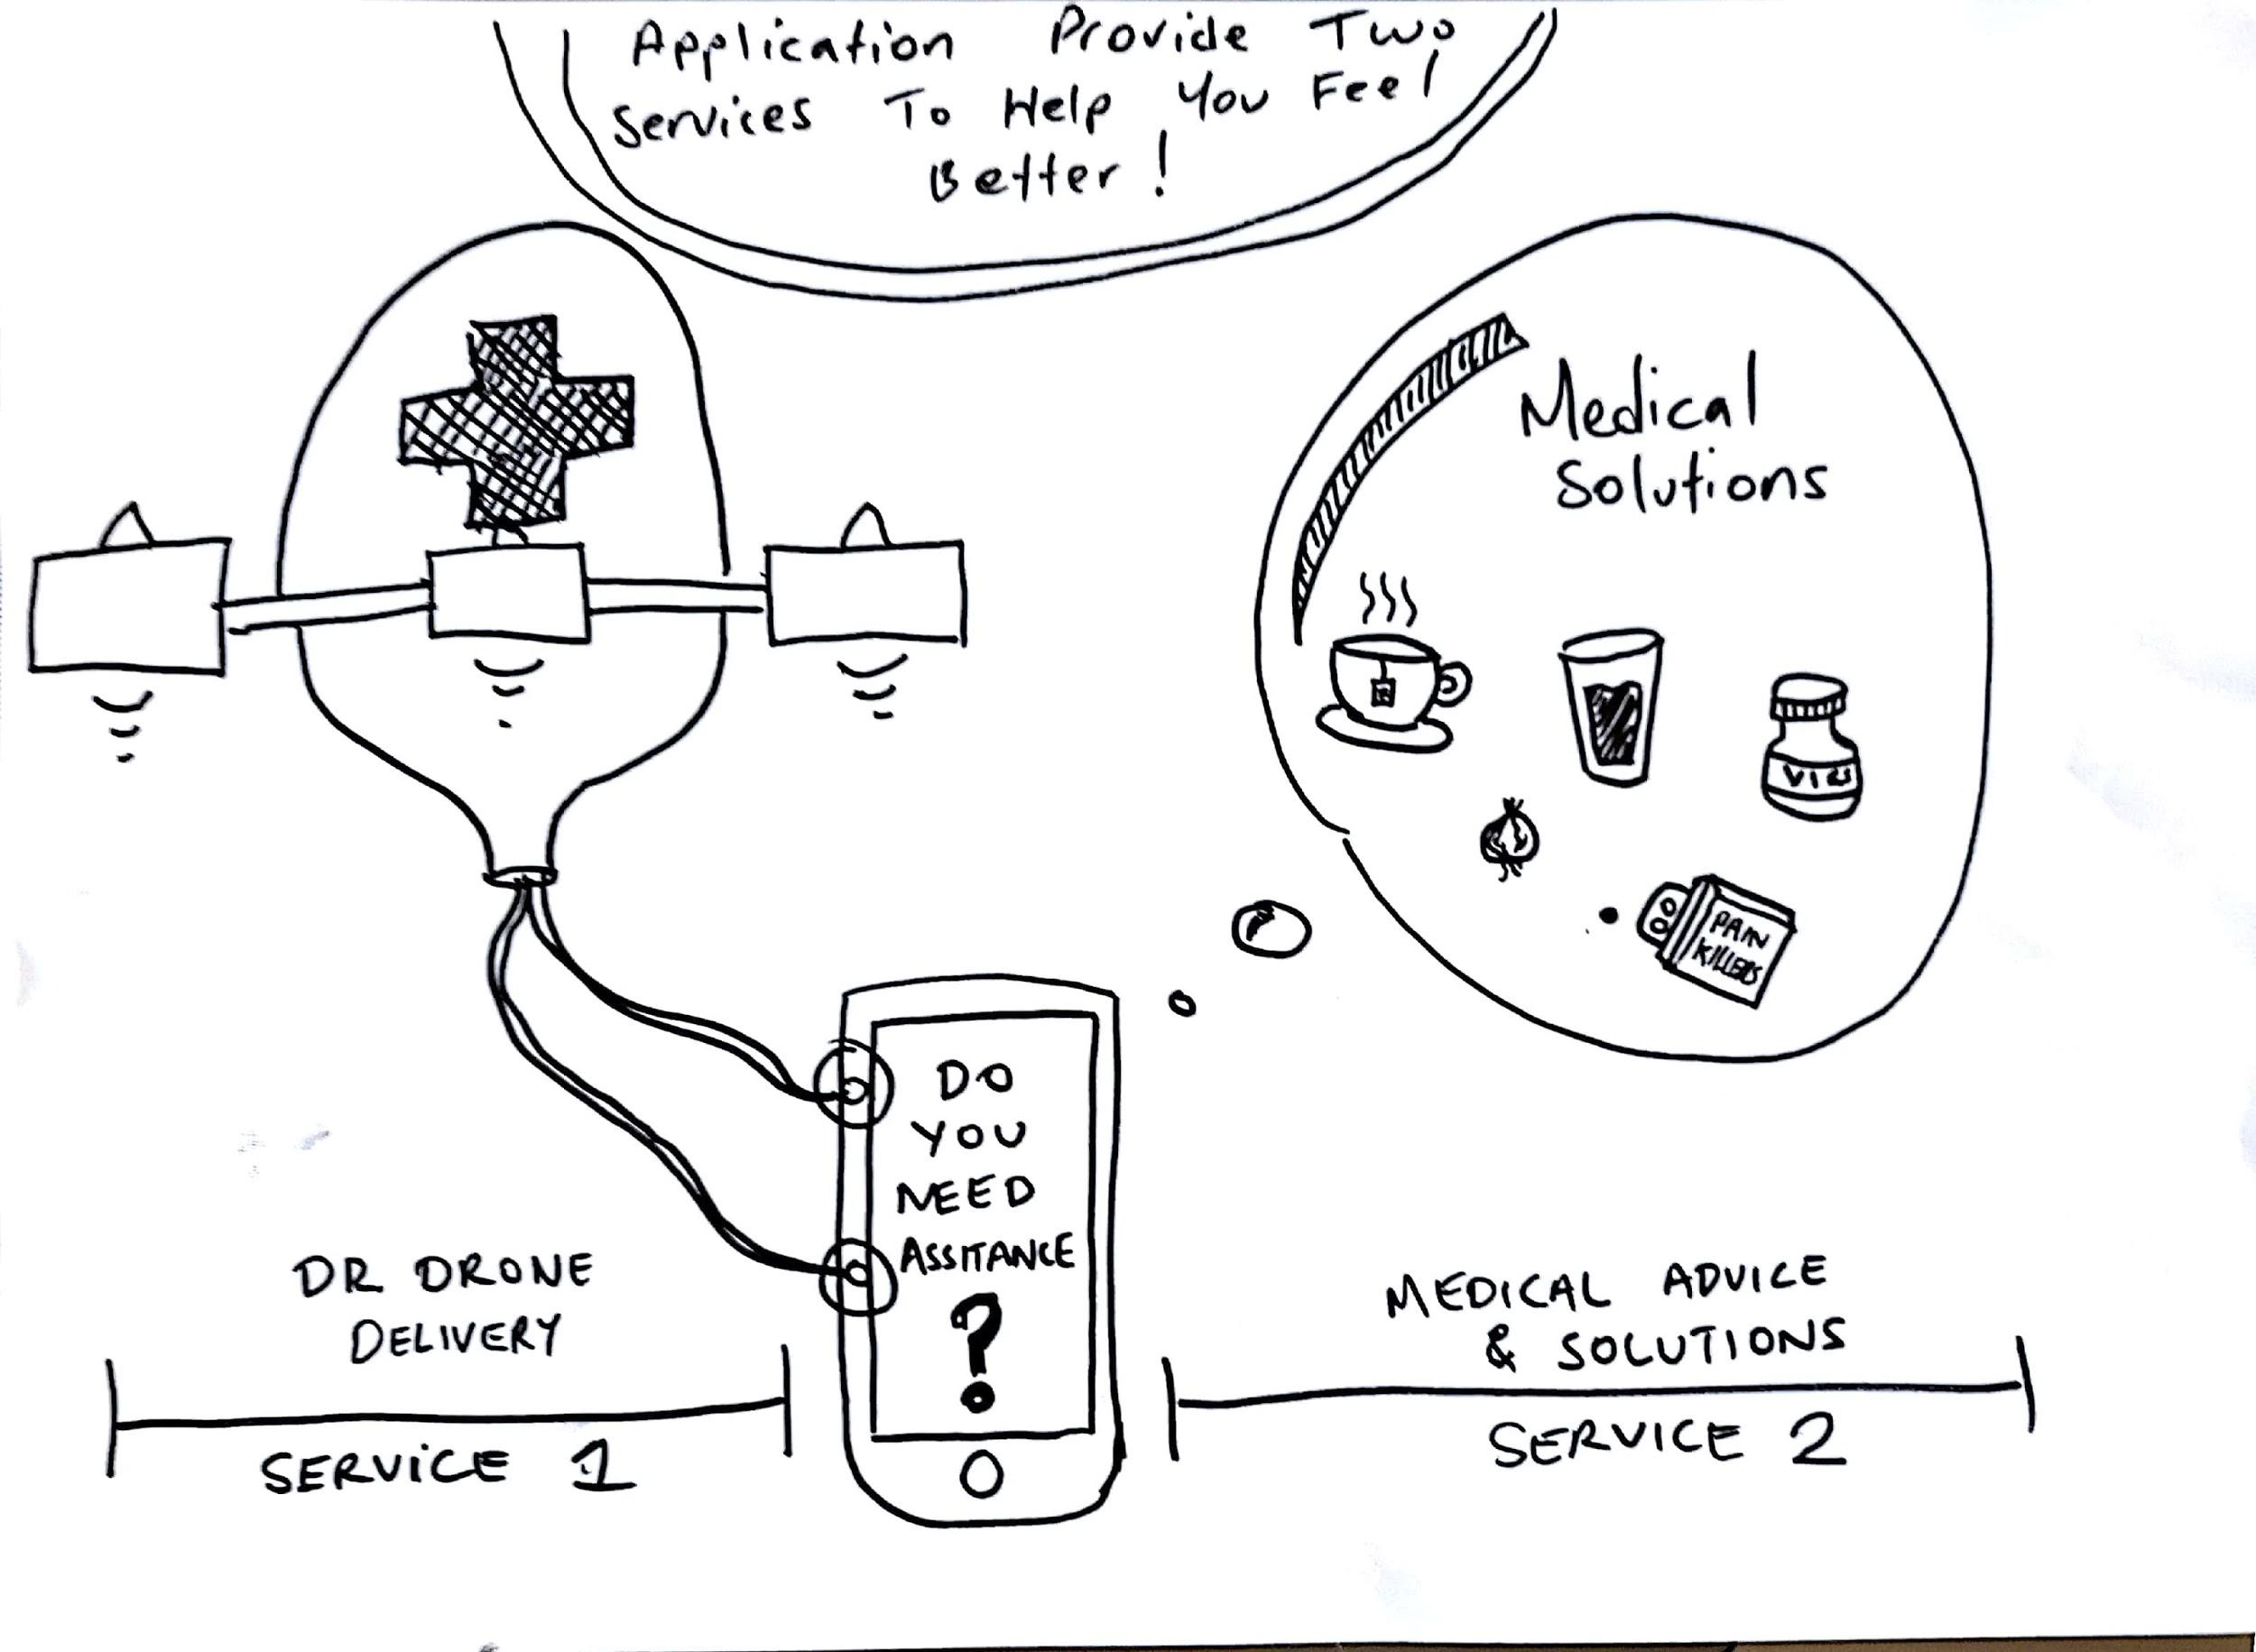 Application Provide Two
Services To Help You Feel
Better!
Medical
Solutions
PAIN
KILLERS
DO
YOU
NEED
ASSITANCE
?
DR DRONE
DELIVERY
SERVICE 1
MEDICAL ADVICE
& SOLUTIONS
SERVICE 2